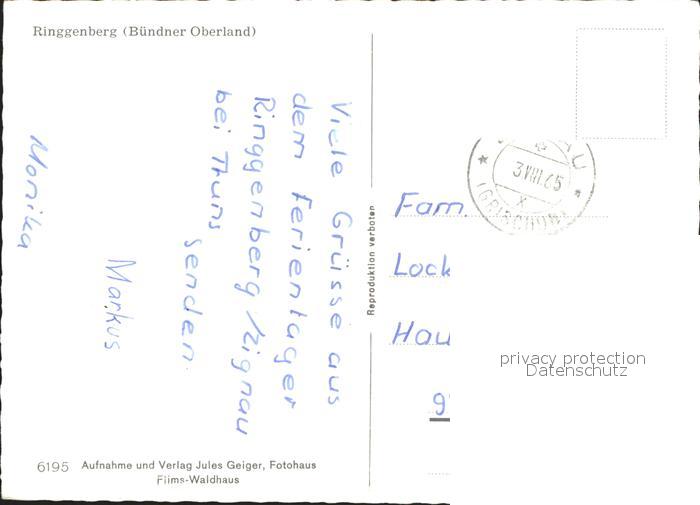 Ringgenberg (Bündner Oberland)
Viele Grüsse aus
dem Ferienlager
Ringgenberg/Zignau
bei Thuns
senden.
Markus
Monika
Reproduktion verboten
3.VIII.65
X
(GRISCHUN)
Fam.
Lock
Hau
9
privacy protection
Datenschutz
6195 Aufnahme und Verlag Jules Geiger, Fotohaus
Flims-Waldhaus